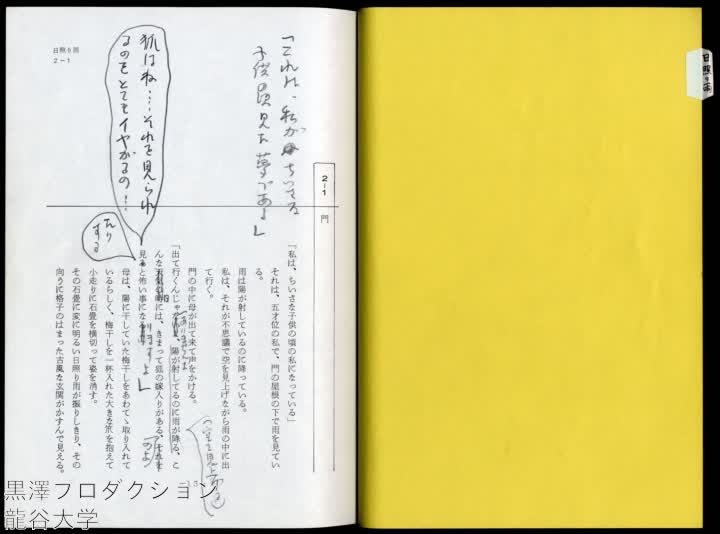 日照り雨
日照り雨
2－1
「これは、私が
子供の頃見た夢である」
狐はね…それを見られ
るのをとてもイヤがるの…！
たり
する
2－1
門
「私は、ちいさな子供の頃の私になっている」
それは、五才位の私で、門の屋根の下で雨を見てい
る。
雨は陽が射しているのに降っている。
私は、それが不思議で空を見上げながら雨の中に出
て行く。
門の中に母が出て来て声をかける。
「出て行くんじゃ、陽が射してるのに雨が降る、こ
んな には、きまって狐の嫁入りがある、それを
見ると怖い事にな
りますよ」
のよ
母は、陽に干していた梅干しをあわてゝ取り入れて
いるらしく、梅干しを一杯入れた大きな笊を抱えて
小走りに石畳を横切って姿を消す。
その石畳に変に明るい日照り雨が振りしきり、その
向うに格子のはまった古風な玄関がかすんで見える。
15
黒澤プロダクション
龍谷大学